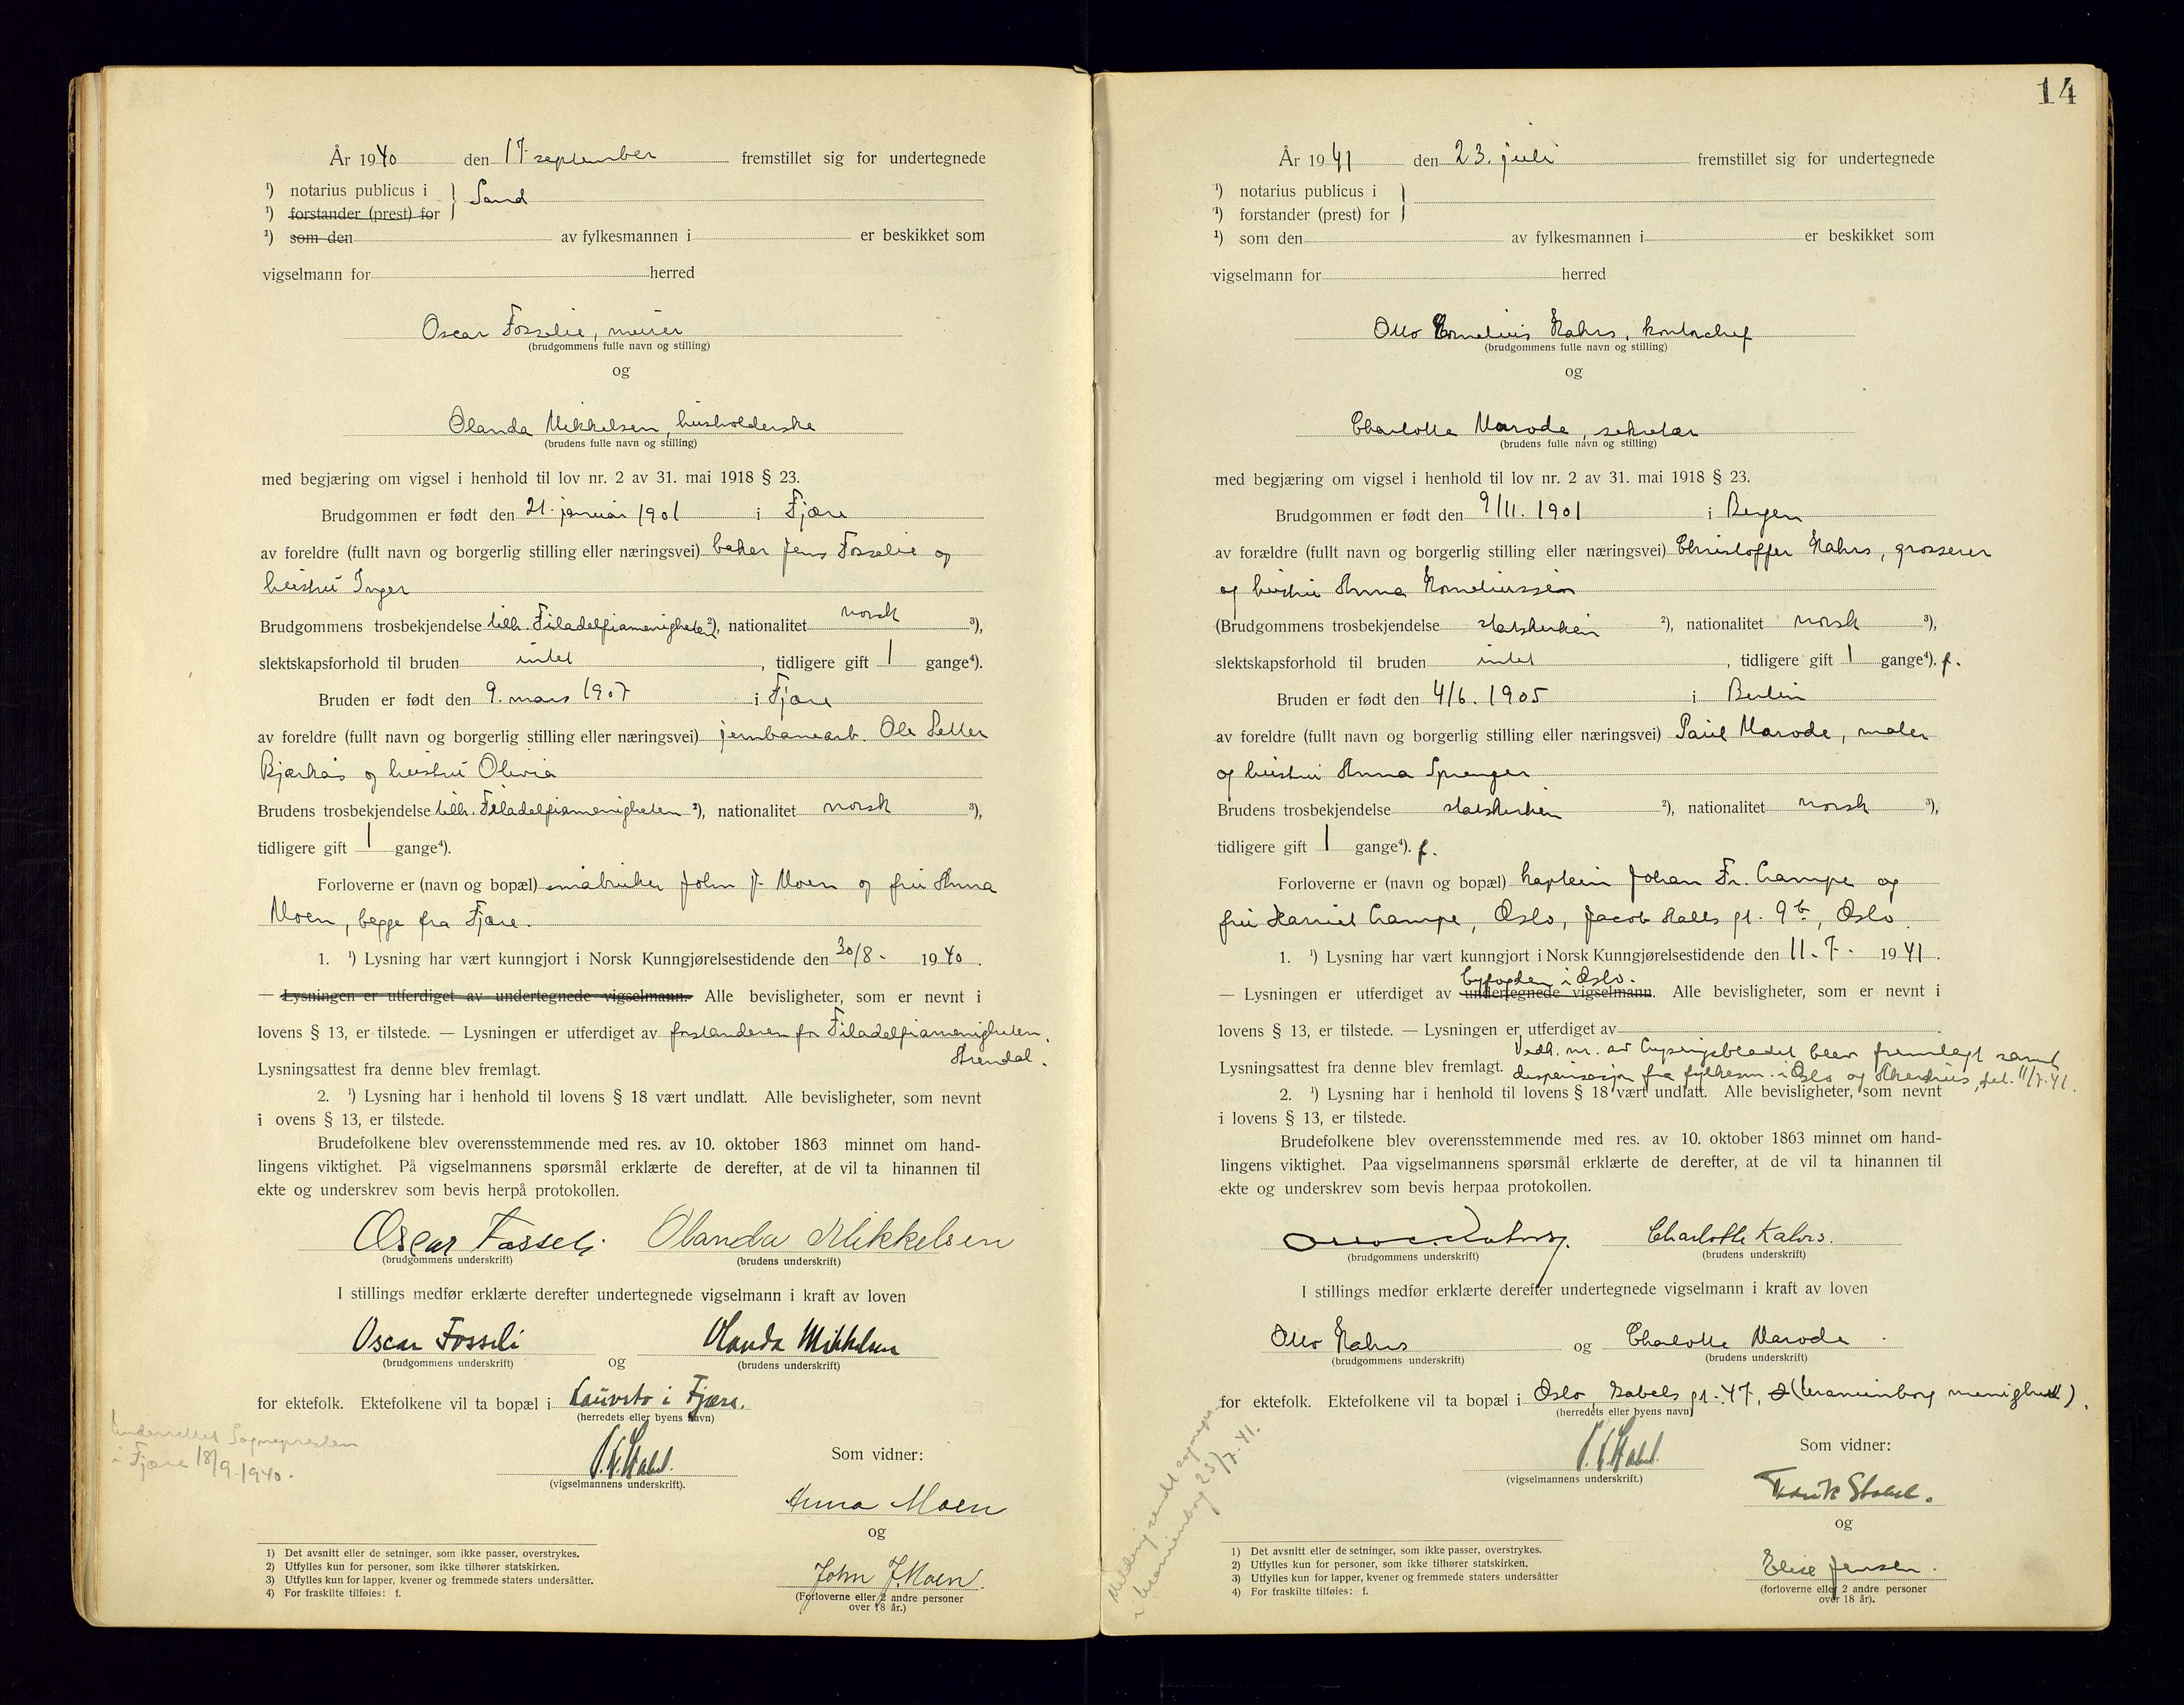 År 1940 den 17 september fremstillet sig for undertegnede
¹) notarius publicus i } Sand
¹) forstander (prest) for
¹) som den av fylkesmannen i er beskikket som
vigselmann for herred
Oscar Fosselie, murer
(brudgommens fulle navn og stilling)
og
Olanda Mikkelsen, husholderske
(brudens fulle navn og stilling)
med begjæring om vigsel i henhold til lov nr. 2 av 31. mai 1918 § 23.
Brudgommen er født den 21. januar 1901 i Fjære
av foreldre (fullt navn og borgerlig stilling eller næringsvei) baker Jens Fosselie og
hustru Inger
Brudgommens trosbekjendelse tilh. Filadelfiamenigheten ²), nationalitet norsk ³),
slektskapsforhold til bruden intet, tidligere gift 1 gange⁴).
Bruden er født den 9. mars 1907 i Fjære
av foreldre (fullt navn og borgerlig stilling eller næringsvei) jernbanearb. Ole Salve
Bjørkås og hustru Olivia
Brudens trosbekjendelse tilh. Filadelfiamenigheten ²), nationalitet norsk ³),
tidligere gift 1 gange⁴).
Forloverne er (navn og bopæl) småbruker John J. Moen og fru Anna
Moen, begge fra Fjære.
1. ¹) Lysning har vært kunngjort i Norsk Kunngjørelsestidende den 30/8 - 1940.
— Lysningen er utferdiget av undertegnede vigselmann. Alle bevisligheter, som er nevnt i
lovens § 13, er tilstede. — Lysningen er utferdiget av forstanderen for Filadelfiamenigheten,
Arendal.
Lysningsattest fra denne blev fremlagt.
2. ¹) Lysning har i henhold til lovens § 18 vært undlatt. Alle bevisligheter, som nevnt
i ovens § 13, er tilstede.
Brudefolkene blev overensstemmende med res. av 10. oktober 1863 minnet om hand-
lingens viktighet. På vigselmannens spørsmål erklærte de derefter, at de vil ta hinannen til
ekte og underskrev som bevis herpå protokollen.
Oscar Fosseli Olanda Mikkelsen
(brudgommens underskrift) (brudens underskrift)
I stillings medfør erklærte derefter undertegnede vigselmann i kraft av loven
Oscar Fosseli og Olanda Mikkelsen
(brudgommens underskrift) (brudens underskrift)
for ektefolk. Ektefolkene vil ta bopæl i i Fjære.
(herredets eller byens navn)
Underrettet Sognepresten
i Fjære 18/9-1940.
(vigselmannens underskrift).
Som vidner:
Anna Moen
og
John J. Moen.
(Forloverne eller 2 andre personer
over 18 år.)
1) Det avsnitt eller de setninger, som ikke passer, overstrykes.
2) Utfylles kun for personer, som ikke tilhører statskirken.
3) Utfylles kun for lapper, kvener og fremmede staters undersåtter.
4) For fraskilte tilføies: f.
14
År 1941 den 23. juli fremstillet sig for undertegnede
¹) notarius publicus i }
¹) forstander (prest) for
¹) som den av fylkesmannen i er beskikket som
vigselmann for herred
Otto Kornelius Kahrs, kontorchef
(brudgommens fulle navn og stilling)
og
Charlotte Marode, sekretær
(brudens fulle navn og stilling)
med begjæring om vigsel i henhold til lov nr. 2 av 31. mai 1918 § 23.
Brudgommen er født den 9/11. 1901 i Bergen
av forældre (fullt navn og borgerlig stilling eller næringsvei) Christoffer Kahrs, grosserer
og hustru Anna Korneliussen
(Brudgommens trosbekjendelse statskirken ²), nationalitet norsk ³),
slektskapsforhold til bruden intet, tidligere gift 1 gange⁴). f.
Bruden er født den 4/6. 1905 i Berlin
av foreldre (fullt navn og borgerlig stilling eller næringsvei) Paul Marode, maler
og hustru Anna Sprenger
Brudens trosbekjendelse statskirken ²), nationalitet norsk ³),
tidligere gift 1 gange⁴). f.
Forloverne er (navn og bopæl) kaptein Johan Fr. Campe og
fru Harriet Campe, Oslo, Jacob Aalls gt. 9b, Oslo
1. ¹) Lysning har vært kunngjort i Norsk Kunngjørelsestidende den 11. 7 - 1941.
byfogden i Oslo.
— Lysningen er utferdiget av undertegnede vigselmann. Alle bevisligheter, som er nevnt i
lovens § 13, er tilstede. — Lysningen er utferdiget av
Vedk. nr. av Lysingsbladet blev fremlagt samt
Lysningsattest fra denne blev fremlagt. dispensasjon fra fylkesm. i Oslo og Akershus, dat. 11/7.41.
2. ¹) Lysning har i henhold til lovens § 18 vært undlatt. Alle bevisligheter, som nevnt
i lovens § 13, er tilstede.
Brudefolkene blev overensstemmende med res. av 10. oktober 1863 minnet om hand-
lingens viktighet. Paa vigselmannens spørsmål erklærte de derefter, at de vil ta hinannen til
ekte og underskrev som bevis herpaa protokollen.
Otto C. Kahrs. Charlotte Kahrs.
(brudgommens underskrift) (brudens underskrift)
I stillings medfør erklærte derefter undertegnede vigselmann i kraft av loven
Otto Kahrs og Charlotte Marode.
(brudgommens underskrift) (brudens underskrift)
for ektefolk. Ektefolkene vil ta bopæl i Oslo, Gabels gt. 47, (Uranienborg menighet).
(herredets eller byens navn)
Melding sendt sogneprest
i Uranienborg 23/7-41.
(vigselmannens underskrift.)
Som vidner:
Fredrik Stabel.
og
Elise Jensen.
(forloverne eller 2 andre personer
over 18 år).
1) Det avsnitt eller de setninger, som ikke passer, overstrykes.
2) Utfylles kun for personer, som ikke tilhører statskirken.
3) Utfylles kun for lapper, kvener og fremmede staters undersåtter
4) For fraskilte tilføies: f.